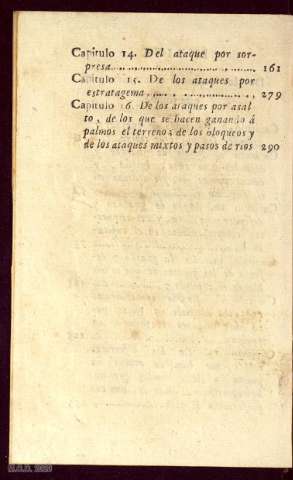 Capitulo 14. Del ataque por sor-
presa............................ 161
Capitulo 15. De los ataques por
estratagema..................... 279
Capitulo 16. De los ataques por asal
to, de los que se hacen ganando á
palmos el terreno; de los bloqueos y
de los ataques mixtos y pasos de rios 290